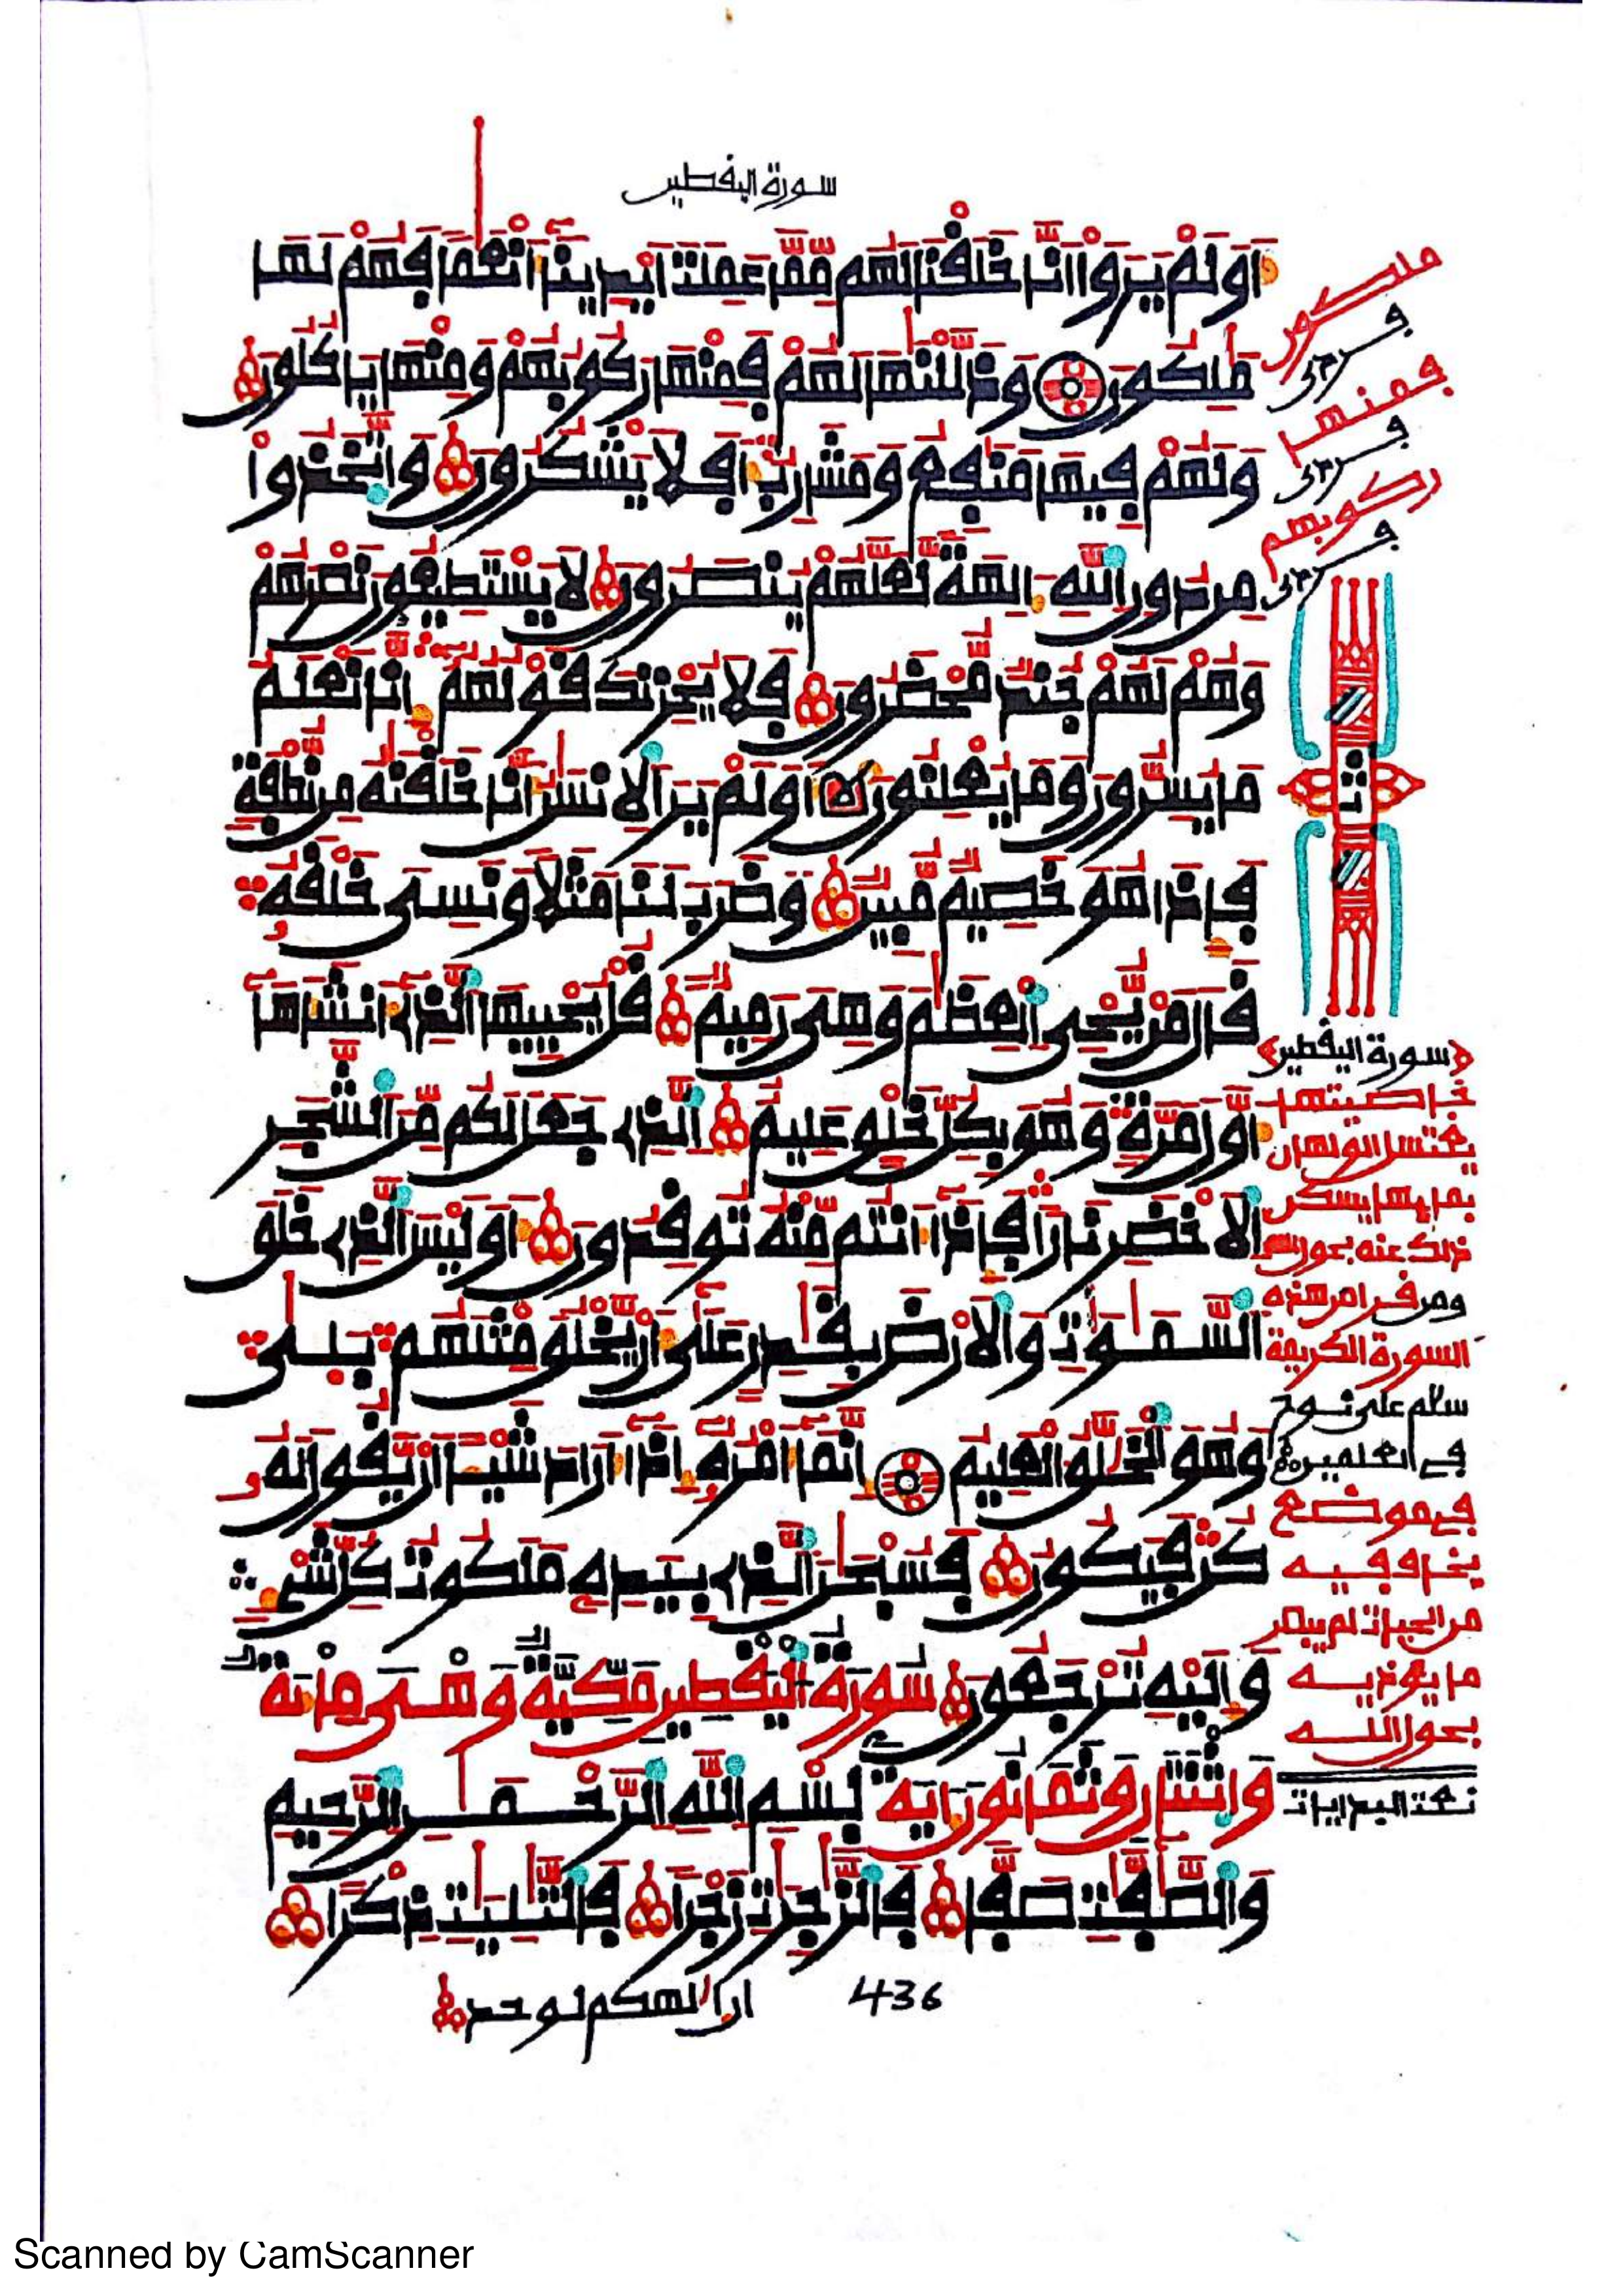 سورة اليقطين
اَوَلَمْ يَرَوْا اَنَّا خَلَقْنَا لَهُم مِّمَّا عَمِلَتَ اَيْدِينَآ أَنْعَٰمًا فَهُمْ لَهَا
مَٰلِكُونَ وَذَلَّلْنَٰهَا لَهُمْ فَمِنْهَا رَكُوبُهُمْ وَمِنْهَا يَاكُلُونَ
وَلَهُمْ فِيهَا مَنَٰفِعُ وَمَشَارِبُ أَفَلَا يَشْكُرُونَ وَاتَّخَذُوا
مِن دُونِ اللَّهِ ءَالِهَةً لَّعَلَّهُمْ يُنصَرُونَ لَا يَسْتَطِيعُونَ نَصْرَهُمْ
وَهُمْ لَهُمْ جُندٌ مُّحْضَرُونَ فَلَا يُحْزِنكَ قَوْلُهُمْ إِنَّا نَعْلَمُ
مَا يُسِرُّونَ وَمَا يُعْلِنُونَ أَوَلَمْ يَرَ الْإِنسَٰنُ أَنَّا خَلَقْنَٰهُ مِن نُّطْفَةٍ
فَإِذَا هُوَ خَصِيمٌ مُّبِينٌ وَضَرَبَ لَنَا مَثَلًا وَنَسِيَ خَلْقَهُ
قَالَ مَنْ يُّحْيِ الْعِظَٰمَ وَهِيَ رَمِيمٌ قُلْ يُحْيِيهَا الَّذِي أَنشَأَهَآ
أَوَّلَ مَرَّةٍ وَهُوَ بِكُلِّ خَلْقٍ عَلِيمٌ الَّذِي جَعَلَ لَكُم مِّنَ الشَّجَرِ
الْأَخْضَرِ نَارًا فَإِذَآ أَنتُم مِّنْهُ تُوقِدُونَ أَوَلَيْسَ الَّذِي خَلَقَ
السَّمَٰوَٰتِ وَالْأَرْضَ بِقَٰدِرٍ عَلَىٰٓ أَنْ يَّخْلُقَ مِثْلَهُم بَلَىٰ
وَهُوَ الْخَلَّٰقُ الْعَلِيمُ إِنَّمَآ أَمْرُهُ إِذَآ أَرَادَ شَيْـًٔا أَنْ يَّقُولَ لَهُ
كُن فَيَكُونُ فَسُبْحَٰنَ الَّذِي بِيَدِهِ مَلَكُوتُ كُلِّ شَيْءٍ
وَإِلَيْهِ تُرْجَعُونَ سُورَةُ الْيَقْطِينِ مَكِّيَّةٌ وَهْيَ مِائَةٌ
وَاثْنَتَانِ وَثَمَانُونَ آيَةً بِسْمِ اللَّهِ الرَّحْمَٰنِ الرَّحِيمِ
وَالصَّٰٓفَّٰتِ صَفًّا فَالزَّٰجِرَٰتِ زَجْرًا فَالتَّٰلِيَٰتِ ذِكْرًا
ان الهكم لوحد
436
ملكون
فمنها
ركوبهم
ثمن
سورة اليقطين
خاصيتها
يغتسل الولهان
بمايها يسكن
ذلك عنه بعون الله
ومن قرا من هذه
السورة الكريمة
سلام على نوح
في العلمين
في موضع
يخاف فيه
من الحيات لم يبصر
ما يوذيه
بعون الله
Scanned by CamScanner